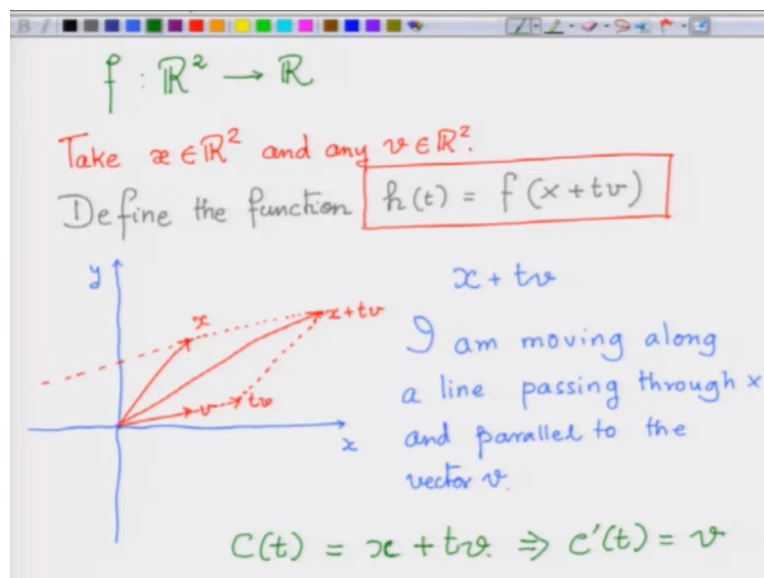 B I
f : ℝ² → ℝ
Take x ∈ ℝ² and any v ∈ ℝ².
Define the function h(t) = f(x + tv)
y
x + tv
x
x + tv
I am moving along
a line passing through x
v
tv
and parallel to the
x
vector v.
C(t) = x + tv. ⇒ c'(t) = v